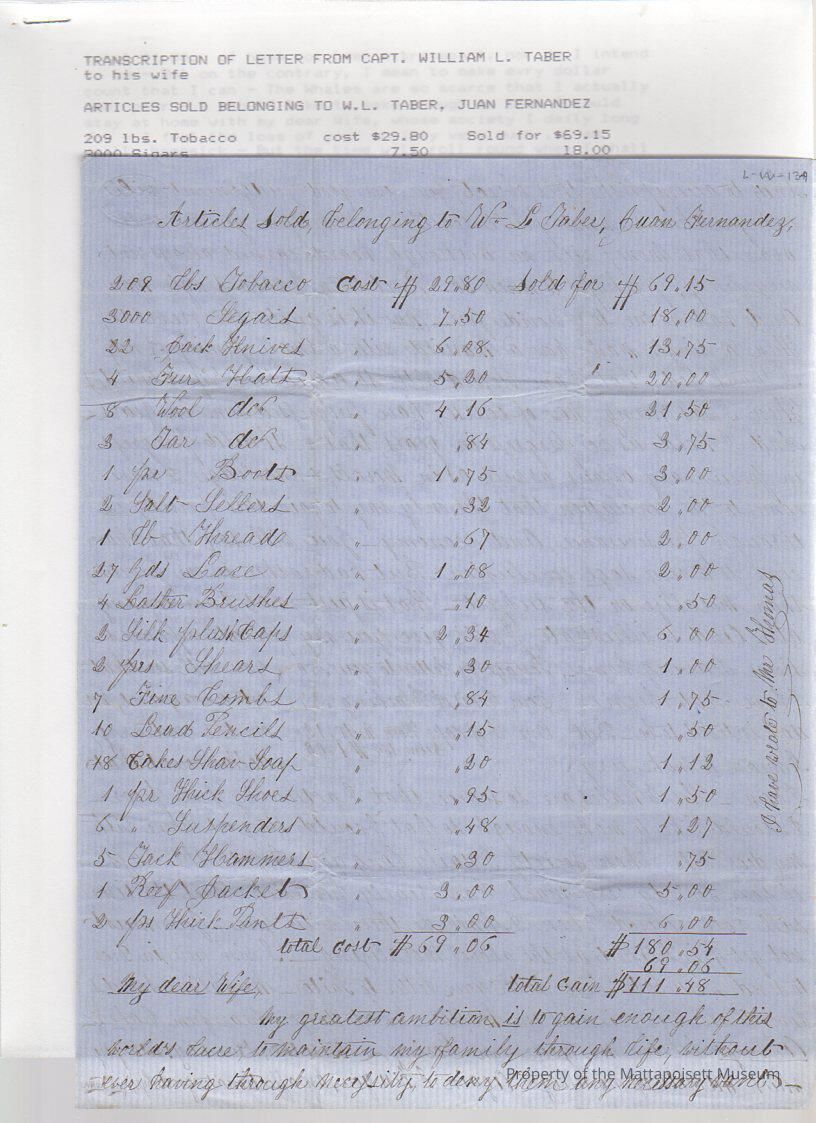 TRANSCRIPTION OF LETTER FROM CAPT. WILLIAM L. TABER
to his wife
ARTICLES SOLD BELONGING TO W.L. TABER, JUAN FERNANDEZ
209 lbs. Tobacco cost $29.80 Sold for $69.15
3000 Sigars 7.50 18.00
L-W-129
Articles Sold, belonging to W. L Taber, Juan Fernandez,
209 lbs Tobacco Cost $ 29.80 Sold for $ 69.15
3000 Segars 7.50 18.00
22 Jack Knives 6.08 13.75
4 Fur Hats 5.20 20.00
8 Wool do " 4.16 21.50
3 Tar do " .84 3.75
1 pr Boots " 1.75 3.00
2 Salt Sellers " .32 2.00
1 lb Thread " .67 2.00
27 Yds Lace " 1.08 2.00
4 Lather Brushes " .10 .50
2 Silk plush Caps " 2.34 6.00
2 prs Shears " .30 1.00
7 Fine Combs " .84 1.75
10 Lead Pencils " .15 .50
18 Cakes Shav Soap " .20 1.12
1 pr Thick Shoes " .95 1.50
6 " Suspenders " .48 1.27
5 Tack Hammers " .30 .75
1 Reef Jacket " 3.00 5.00
2 prs Thick Pants " 3.00 6.00
total Cost $69.06 $180.54
69.06
My dear Wife, total Gain $111.48
My greatest ambition is to gain enough of this
world's lucre to maintain my family through life, without
ever having through necessity, to deny them any necessary wants
I have wrote to Mr Thomas
Property of the Mattapoisett Museum